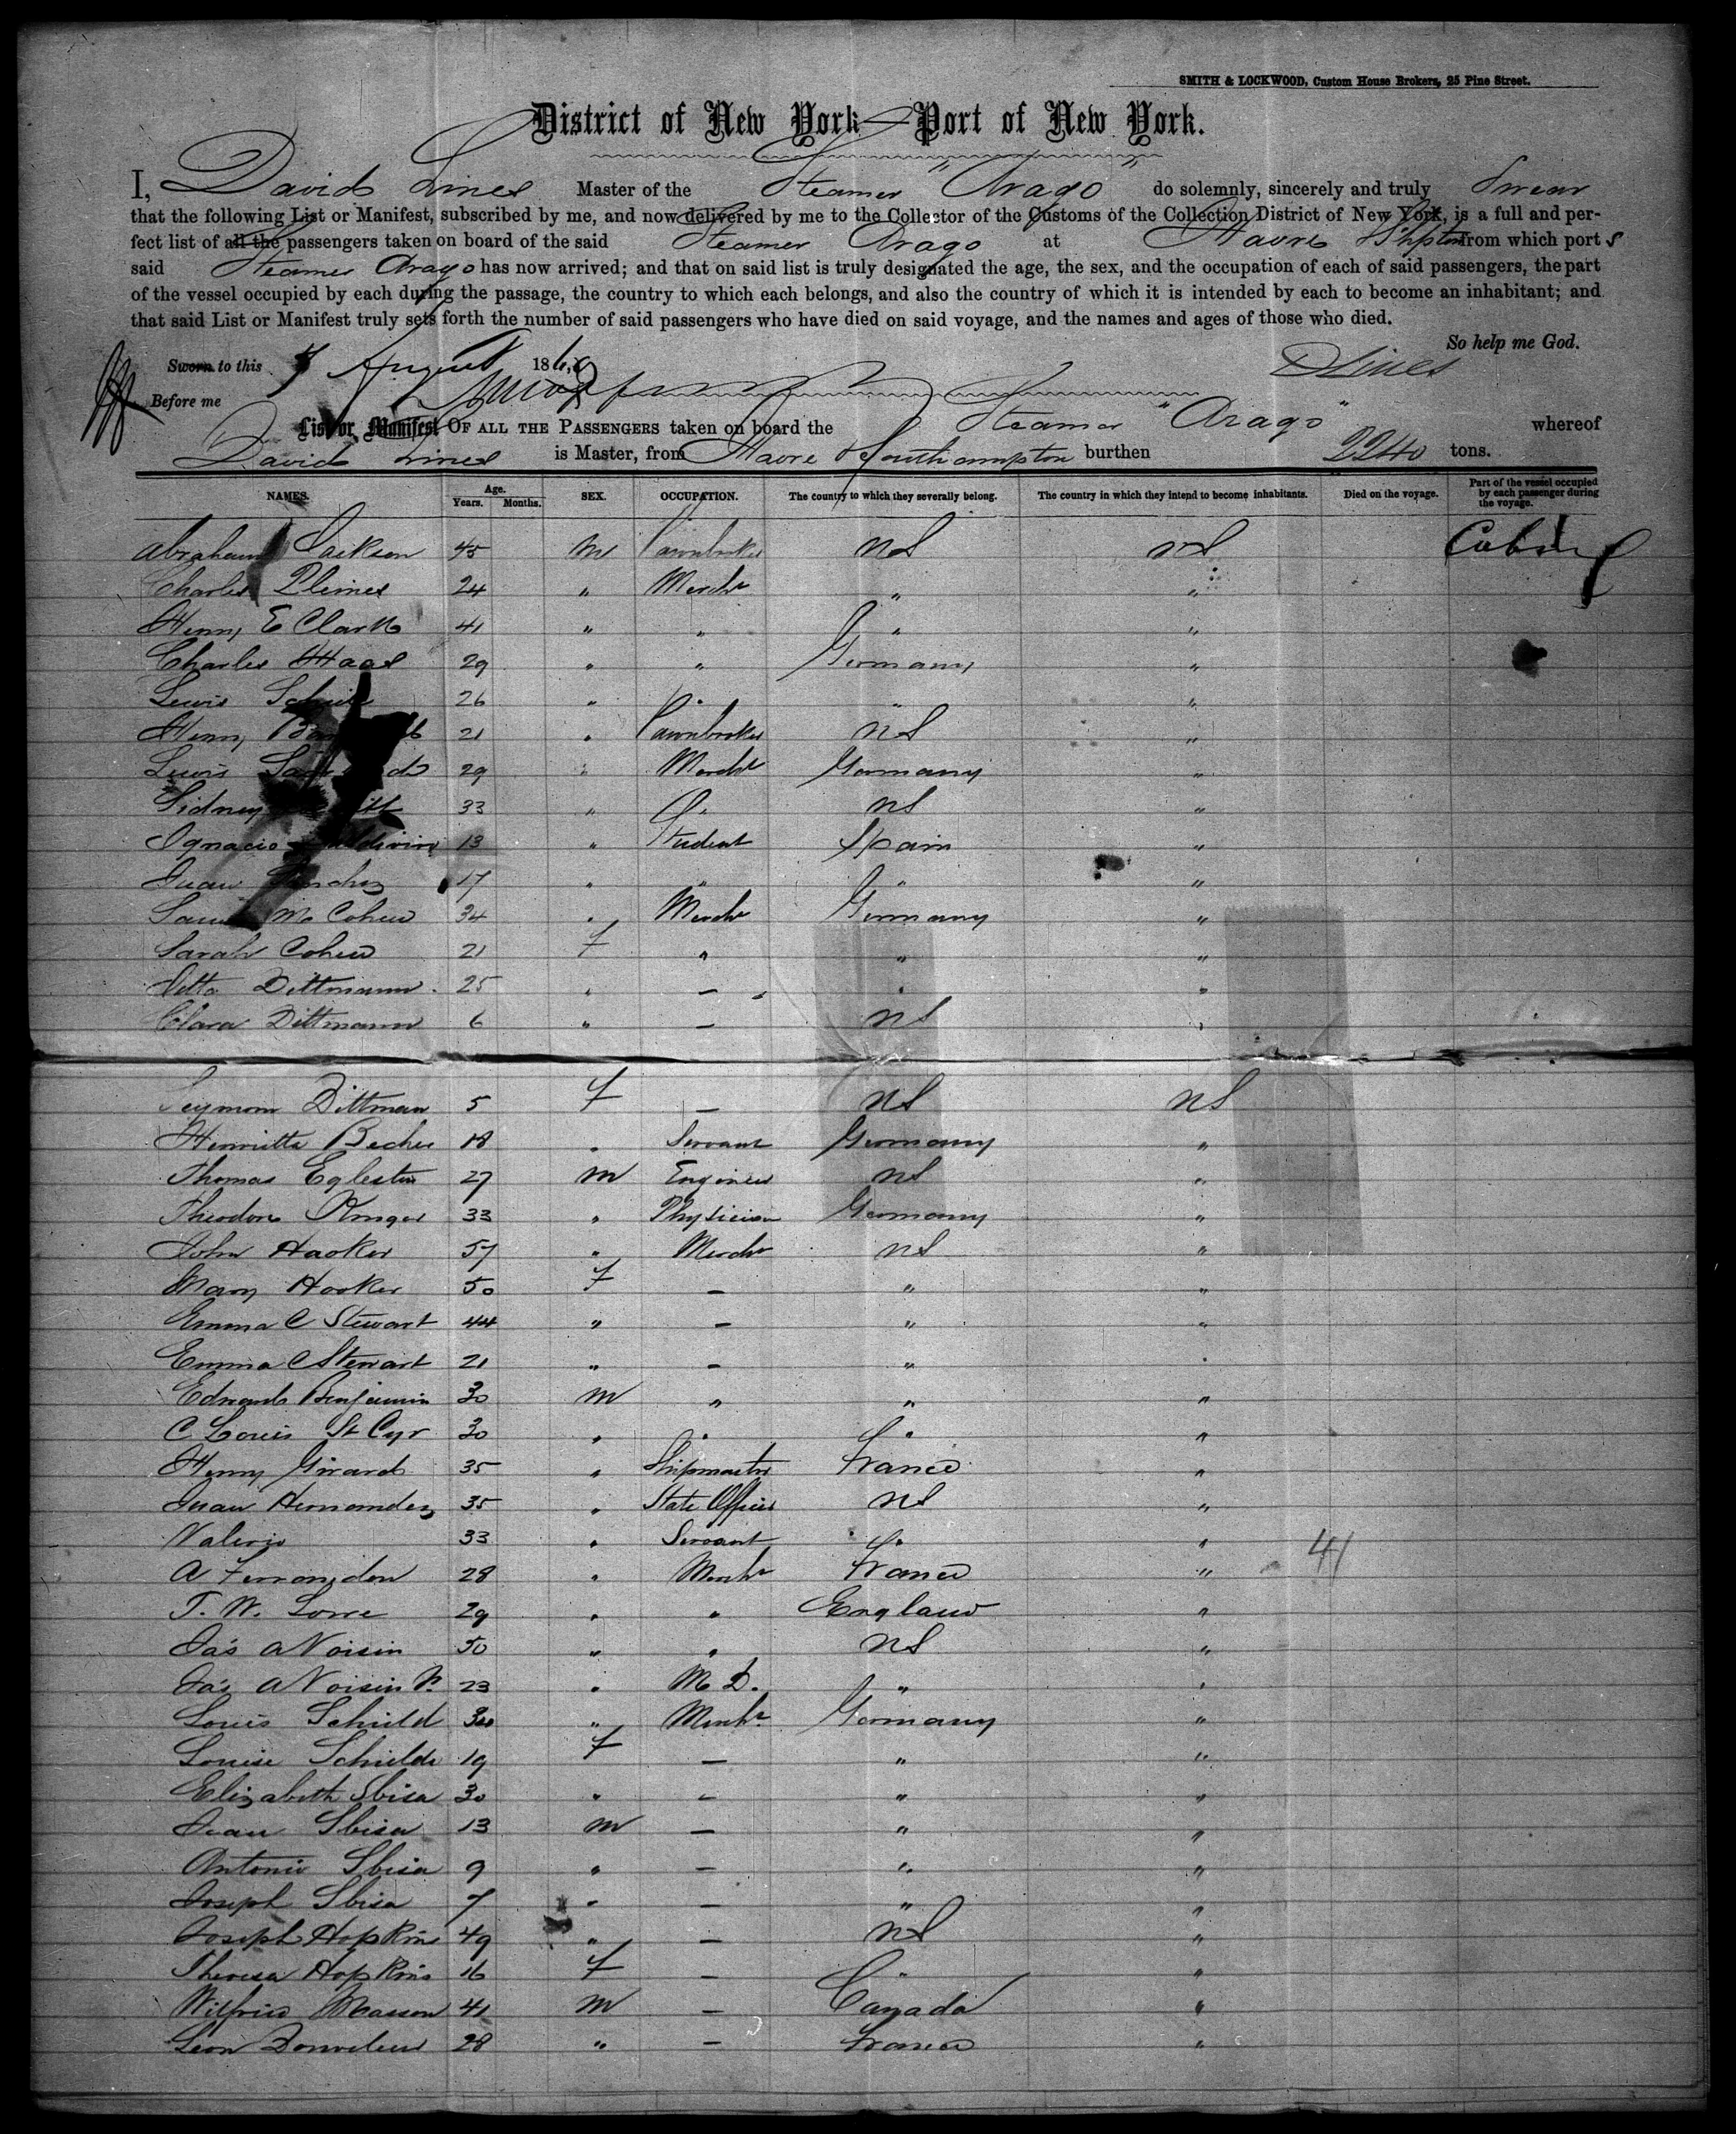 SMITH & LOCKWOOD, Custom House Brokers, 25 Pine Street.
District of New York—Port of New York.
I, David Lines Master of the Steamer "Arago" do solemnly, sincerely and truly Swear
that the following List or Manifest, subscribed by me, and now delivered by me to the Collector of the Customs of the Collection District of New York, is a full and per-
fect list of all the passengers taken on board of the said Steamer Arago at Havre & Shpton from which port s
said Steamer Arago has now arrived; and that on said list is truly designated the age, the sex, and the occupation of each of said passengers, the part
of the vessel occupied by each during the passage, the country to which each belongs, and also the country of which it is intended by each to become an inhabitant; and
that said List or Manifest truly sets forth the number of said passengers who have died on said voyage, and the names and ages of those who died.
So help me God.
Sworn to this August 186 DLines
Before me
List or Manifest OF ALL THE PASSENGERS taken on board the Steamer "Arago" whereof
David Lines is Master, from Havre & Southampton burthen 2240 tons.
NAMES. Age. Years. Months. SEX. OCCUPATION. The country to which they severally belong. The country in which they intend to become inhabitants. Died on the voyage. Part of the vessel occupied by each passenger during the voyage.
Abraham Jackson 45 M Pawnbroker US US Cabin
Charles Pleines 24 " Mercht " "
Henry E Clark 41 " " " "
Charles Haas 29 " " Germany "
Lewis 26 " " " "
Henry 21 " Pawnbroker US "
Lewis 29 " Mercht Germany "
Sidney 33 " " US "
Ignacio 13 " Student Spain "
Juan Sanchez 17 " " " "
Saml M Cohen 34 " Mercht Germany "
Sarah Cohen 21 F " " "
Dittmann 25 " — " "
Clara Dittmann 6 " — US "
Seymour Dittman 5 F — US US
Henrietta Becher 18 " Servant Germany "
Thomas Egleston 27 M Engineer US "
Theodore Kruger 33 " Physician Germany "
John Hooker 57 " Mercht US "
Mary Hooker 50 F — " "
Emma C Stewart 44 " — " "
Emma C Stewart 21 " — " "
Edward Benjamin 30 M " " "
C Louis St Cyr 30 " " " "
Henry Girard 35 " Shipmaster France "
Juan Hernandez 35 " State Officer US "
Valerio 33 " Servant " " 41
A Ferrandou 28 " Mercht France "
T. W. Lowe 29 " " England "
Jas A Voisin 50 " " US "
Jas A Voisin Jr 23 " M D. " "
Louis Schuld 30 " Mercht Germany "
Louise Schulde 19 F — " "
Elizabeth Sbisa 30 " — " "
Juan Sbisa 13 M — " "
Antonio Sbisa 9 " — " "
Joseph Sbisa 7 " — " "
Joseph Hopkins 49 " — US "
Theresa Hopkins 16 F — " "
Wilfrid Masson 41 M — Canada "
Leon 28 " — France "